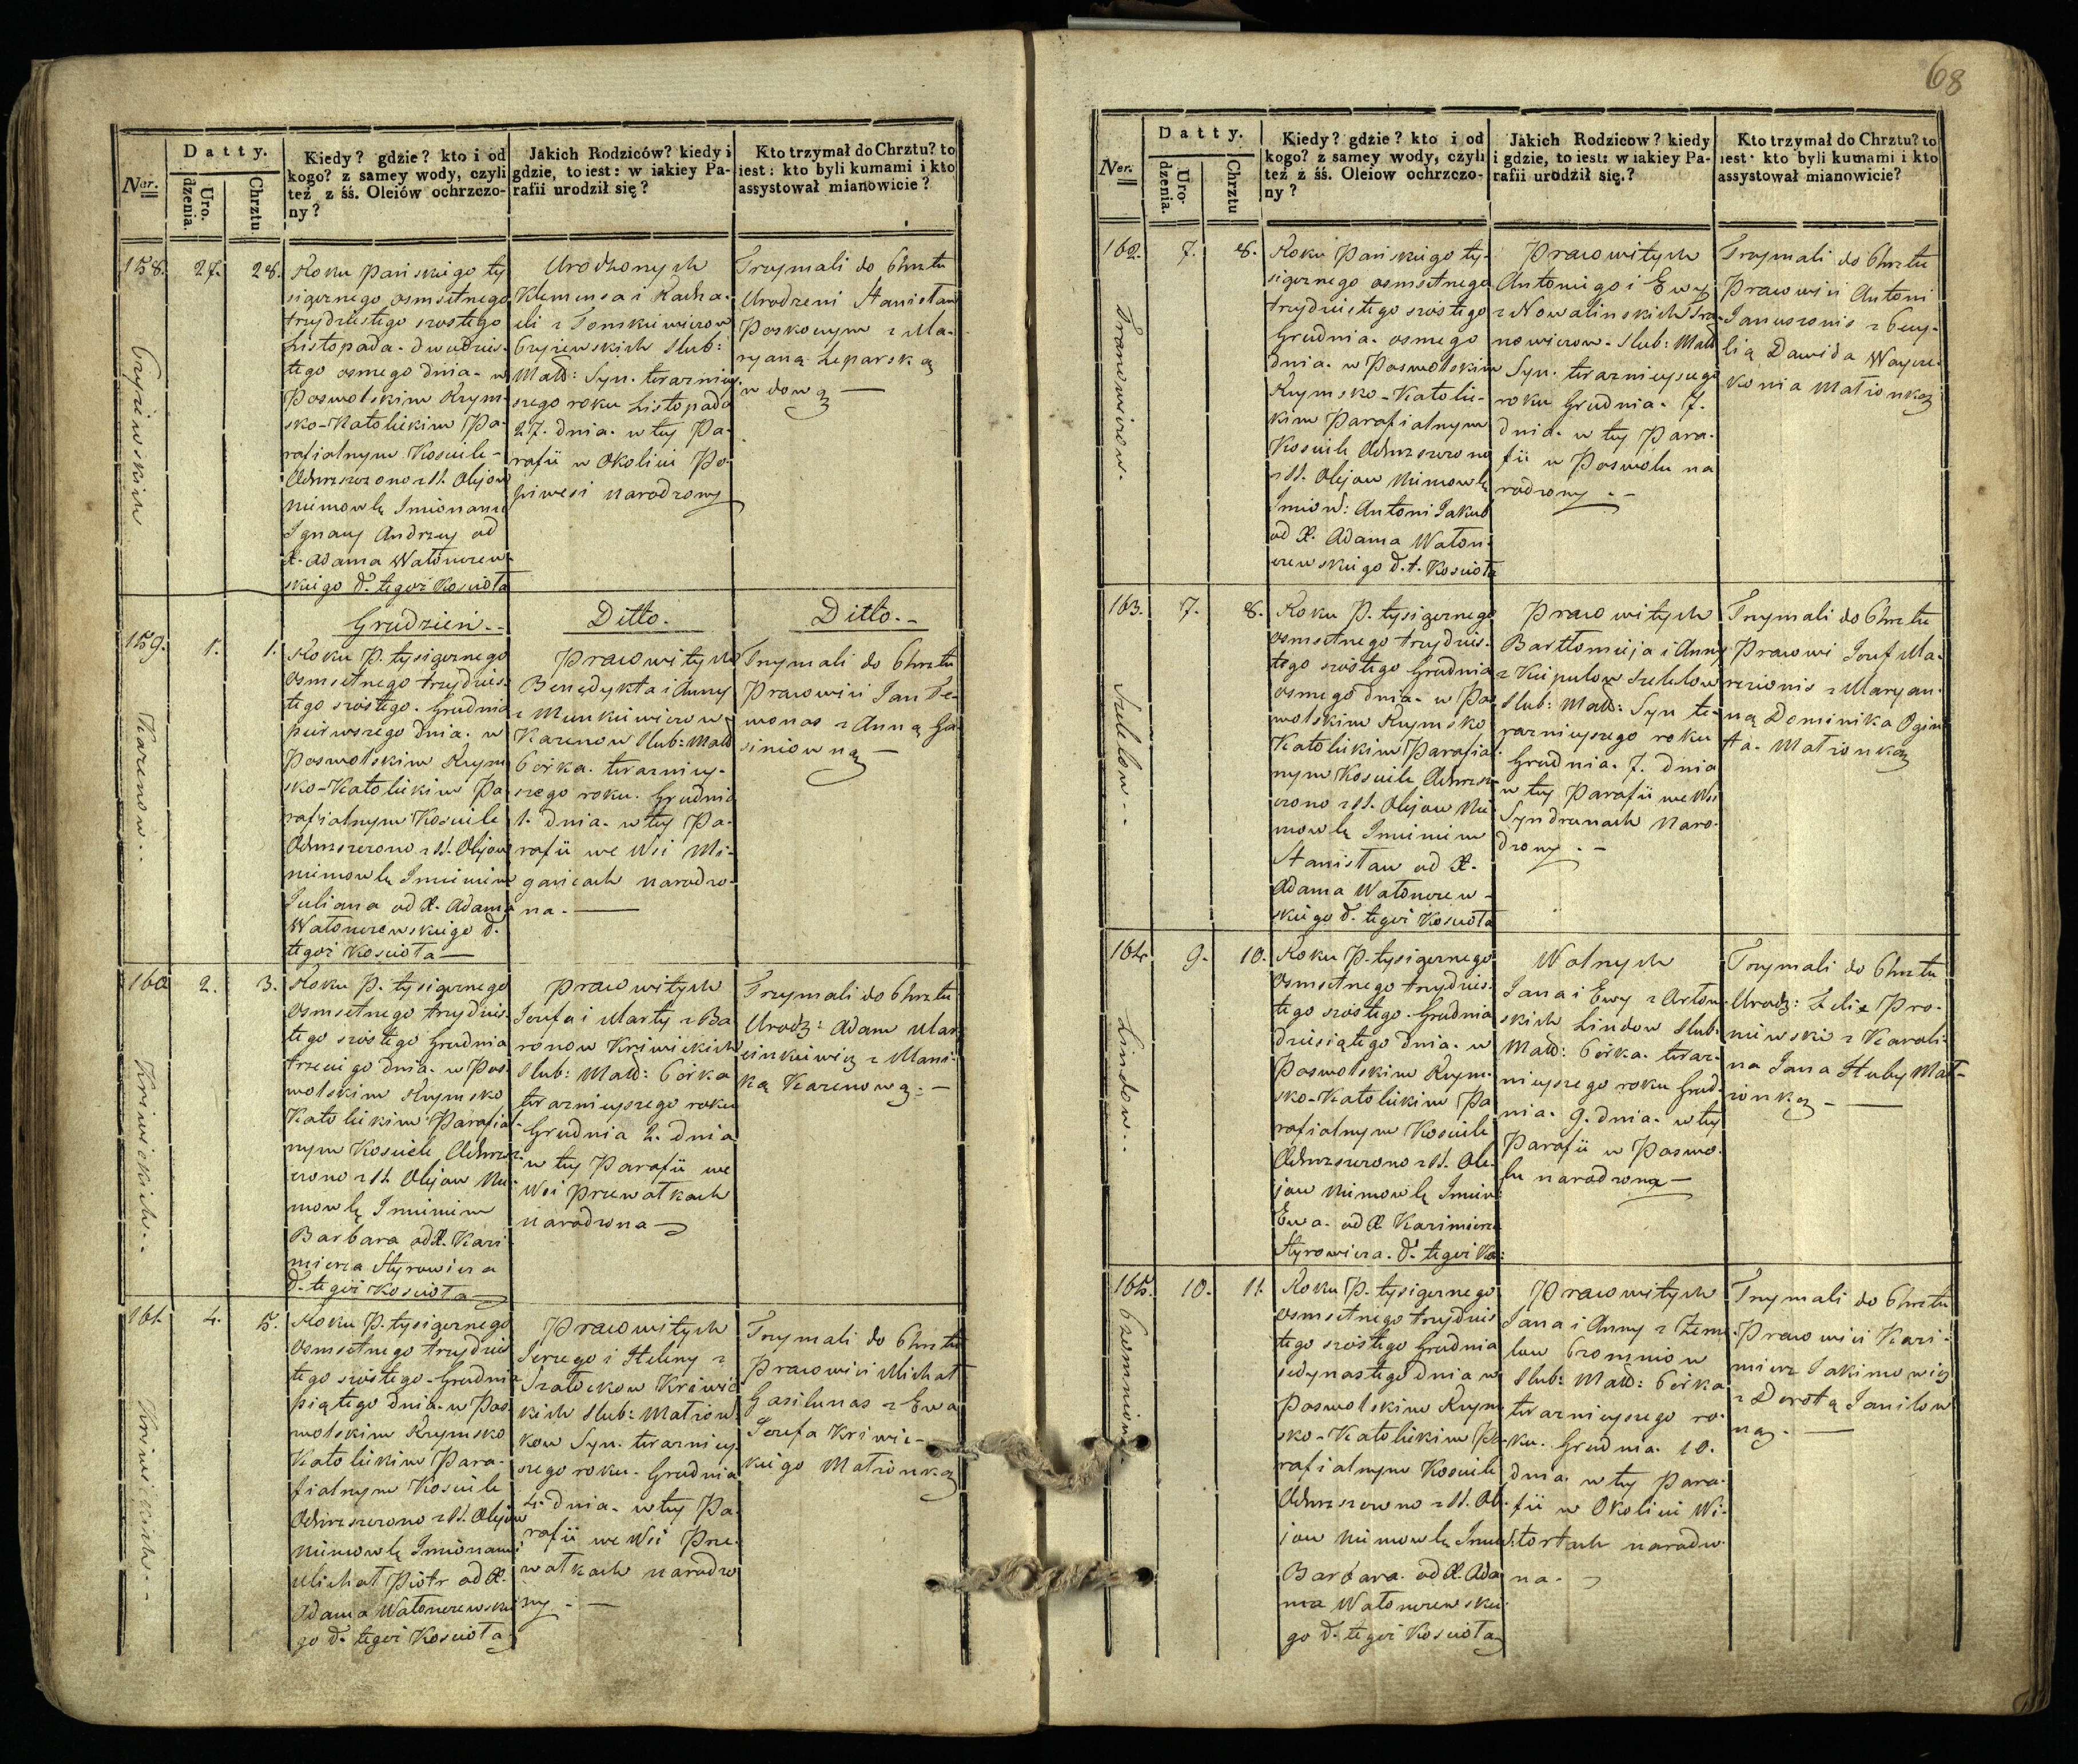 Ner.
Datty.
Uro.
dzenia.
Chrztu
Kiedy? gdzie? kto i od
kogo? z samey wody, czyli
też z śś. Oleiów ochrzczo-
ny?
Jakich Rodziców? kiedy i
gdzie, to iest: w iakiey Pa-
rafii urodził się?
Kto trzymał do Chrztu? to
iest: kto byli kumami i kto
assystował mianowicie?
158.
27.
28.
Roku Pańskiego ty
siącznego osmsetnego
trzydziestego szostego
Listopada. dwudzies-
tego osmego dnia. w
Poswolskim Rzym-
sko-Katolickim Pa-
rafialnym Kościele-
Ochrzszczono z SS. Olejow
niemowlę Imionami
Ignacy Andrzey od
X. Adama Watonczew-
skiego d. tegoż Kosciola
Urodzonych
Klemensa i Racha-
eli z Tomkiewiczow
Czyżewskich Slub:
Małż: Syn. terazniey-
szego roku Listopada
27. dnia. w tey Pa-
rafii w Okolicy Po-
piwesi narodzony
Trzymali do Chrztu
Urodzeni Stanisław
Poskoczym z Ma-
ryaną Leparską
wdową —
Czyżewskich
Grudzień.-
Ditto.
Ditto.-
159.
1.
1.
Roku P. tysiącznego
osmsetnego trzydzies-
tego szostego. Grudnia
pierwszego dnia. w
Poswolskim Rzym-
sko-Katolickim Pa
rafialnym Kosciele
Ochrzszczono z SS. Olejow
niemowlę Imieniem
Juliana od X. Adama
Watonczewskiego d.
tegoż Kosciola —
Pracowitych
Benedykta i Anny
z Munkiewiczow
Karenow Slub: Małż
Corka. terazniey-
szego roku. Grudnia
1. dnia. w tey Pa-
rafii we Wsi Mi-
gańcach narodzo-
na. —
Trzymali do Chrztu
Pracowici Jan Te-
monas z Anną Ga-
siniowną —
Karenow..
160
2.
3.
Roku P. tysiącznego
osmsetnego trzydzies-
tego szostego Grudnia
trzeciego dnia. w Pos-
wolskim Rzymsko
Katolickim Parafial-
nym Kosciele Ochrzsz-
czono z SS. Olejow Nie
mowlę Imieniem
Barbara od X. Kazi-
mierza Styrowicza
d. tegoż Kosciola
Pracowitych
Jozefa i Marty z Ba
ronow Kriwickich
Slub: Małż: Corka
teraznieyszego roku
Grudnia 2. dnia
w tey Parafii we
Wsi Przewałkach
narodzona —
Trzymali do Chrztu
Urodz: Adam Mar-
cinkiewicz z Mani-
ką Karenową: —
Kriwickich..
161.
4.
5.
Roku P. tysiącznego
osmsetnego trzydzies
tego szostego. Grudnia
piątego dnia. w Pos-
wolskim Rzymsko
Katolickim Para-
fialnym Kosciele
Ochrzszczono z SS. Olejow
niemowlę Imionami
Michał Piotr od X.
Adama Watonczewskie
go d. tegoż Kosciola
Pracowitych
Jerzego i Heleny z
Szatockow Kriwic
kich Slub: Małżon-
kow Syn. terazniey-
szego roku. Grudnia
4. dnia. w tey Pa-
rafii we Wsi Prze-
wałkach narodzo
ny. —
Trzymali do Chrztu
Pracowici Michał
Gasilunas z Ewa
Jozefa Kriwic-
kiego Małżonką
Kriwickich..
68
Ner.
Datty.
Uro-
dzenia.
Chrztu
Kiedy? gdzie? kto i od
kogo? z samey wody, czyli
też z śś. Oleiow ochrzczo-
ny?
Jakich Rodzicow? kiedy
i gdzie, to iest: w iakiey Pa-
rafii urodził się.?
Kto trzymał do Chrztu? to
iest: kto byli kumami i kto
assystował mianowicie?
162.
7.
8.
Roku Pańskiego ty-
siącznego osmsetnego
trzydziestego szostego
Grudnia. osmego
dnia. w Poswolskim
Rzymsko-Katolic-
kim Parafialnym
Kosciele Ochrzszczono
z SS. Olejow Niemowlę
Imiow: Antoni Jakub
od X. Adama Waton-
czewskiego d. t. Kosciola
Pracowitych
Antoniego i Ewy
z Nowalinskich Tra-
nowiczow. Slub: Małż
Syn. terazniejszego
roku Grudnia. 7.
dnia. w tey Para-
fii w Poswolu na
rodzony. -
Trzymali do Chrztu
Pracowici Antoni
Januszonis z Cecy-
lią Dawida Wayce-
konia Małżonką
Tranowiczow.
163.
7.
8.
Roku P. tysiącznego
osmsetnego trzydzies-
tego szostego Grudnia
osmego dnia. w Pos
wolskim Rzymsko
Katolickim Parafial-
nym Kosciele Ochrzsz-
czono z SS. Olejow Nie
mowlę Imieniem
Stanisław od X.
Adama Watonczew-
skiego d. tegoż Kosciola
Pracowitych
Bartłomieja i Anny
z Kiepulow Szelelow
Slub: Małż: Syn te-
raznieyszego roku
Grudnia. 7. dnia
w tey Parafii we Wsi
Syndrunach Naro-
dzony. -
Trzymali do Chrztu
Pracowi Jozef Ma-
rezionis z Maryan-
ną Dominika Ogin
ta. Małżonką
Szelelow..
164.
9.
10.
Roku P. tysiącznego
osmsetnego trzydzies-
tego szostego. Grudnia
dziesiątego dnia. w
Poswolskim Rzym-
sko-Katolickim Pa
rafialnym Kosciele
Ochrzszczono z SS. Ole-
jow Niemowlę Imie:
Ewa. od X Kazimierza
Styrowicza. d. tegoż Ko:
Wolnych
Jana i Ewy z Artow-
skich Lindow Slub:
Małż: Corka. teraz-
nieyszego roku Grud-
nia. 9. dnia. w tey
Parafii w Poswo-
lu narodzona —
Trzymali do Chrztu
Urodz: Felix Pro-
niewski z Karoli-
na Jana Huby Mał-
żonką. —
Lindow..
165.
10.
11.
Roku P. tysiącznego
osmsetnego trzydzies
tego szostego Grudnia
jedynastego dnia w
Poswolskim Rzym
sko-Katolickim Pa-
rafialnym Kosciele
Ochrzszczono z SS. Ole-
jow Niemowlę Imie:
Barbara. od X. Ada
ma Watonczewskie-
go d. tegoż Kosciola
Pracowitych
Jana i Anny z Zeme-
low Czomniow
Slub: Małż: Corka
terazniejszego ro-
ku. Grudnia. 10.
dnia. w tey Para-
fii w Okolicy Wi-
stortach narodzo-
na. -
Trzymali do Chrztu
Pracowici Kazi-
mierz Jakimowicz
z Dorotą Janilow
ną. —
Czomniow